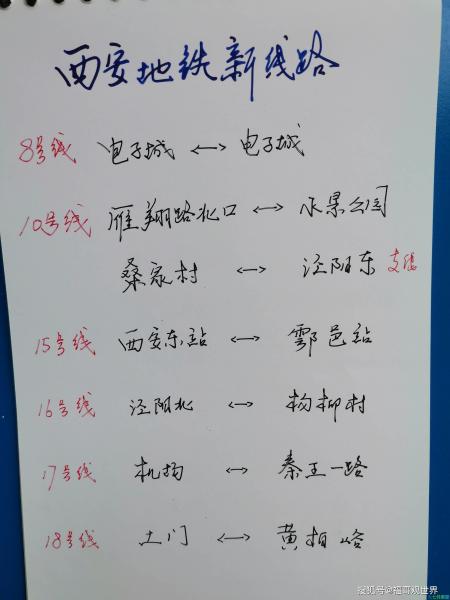 西安地铁新线路
8号线 电子城 ↔ 电子城
10号线 雁翔路北口 ↔ 水果公园
桑家村 ↔ 泾阳东 支线
15号线 西安东站 ↔ 鄠邑站
16号线 泾阳北 ↔ 杨柳村
17号线 机场 ↔ 秦王一路
18号线 土门 ↔ 黄柏峪
搜狐号@福哥观世界